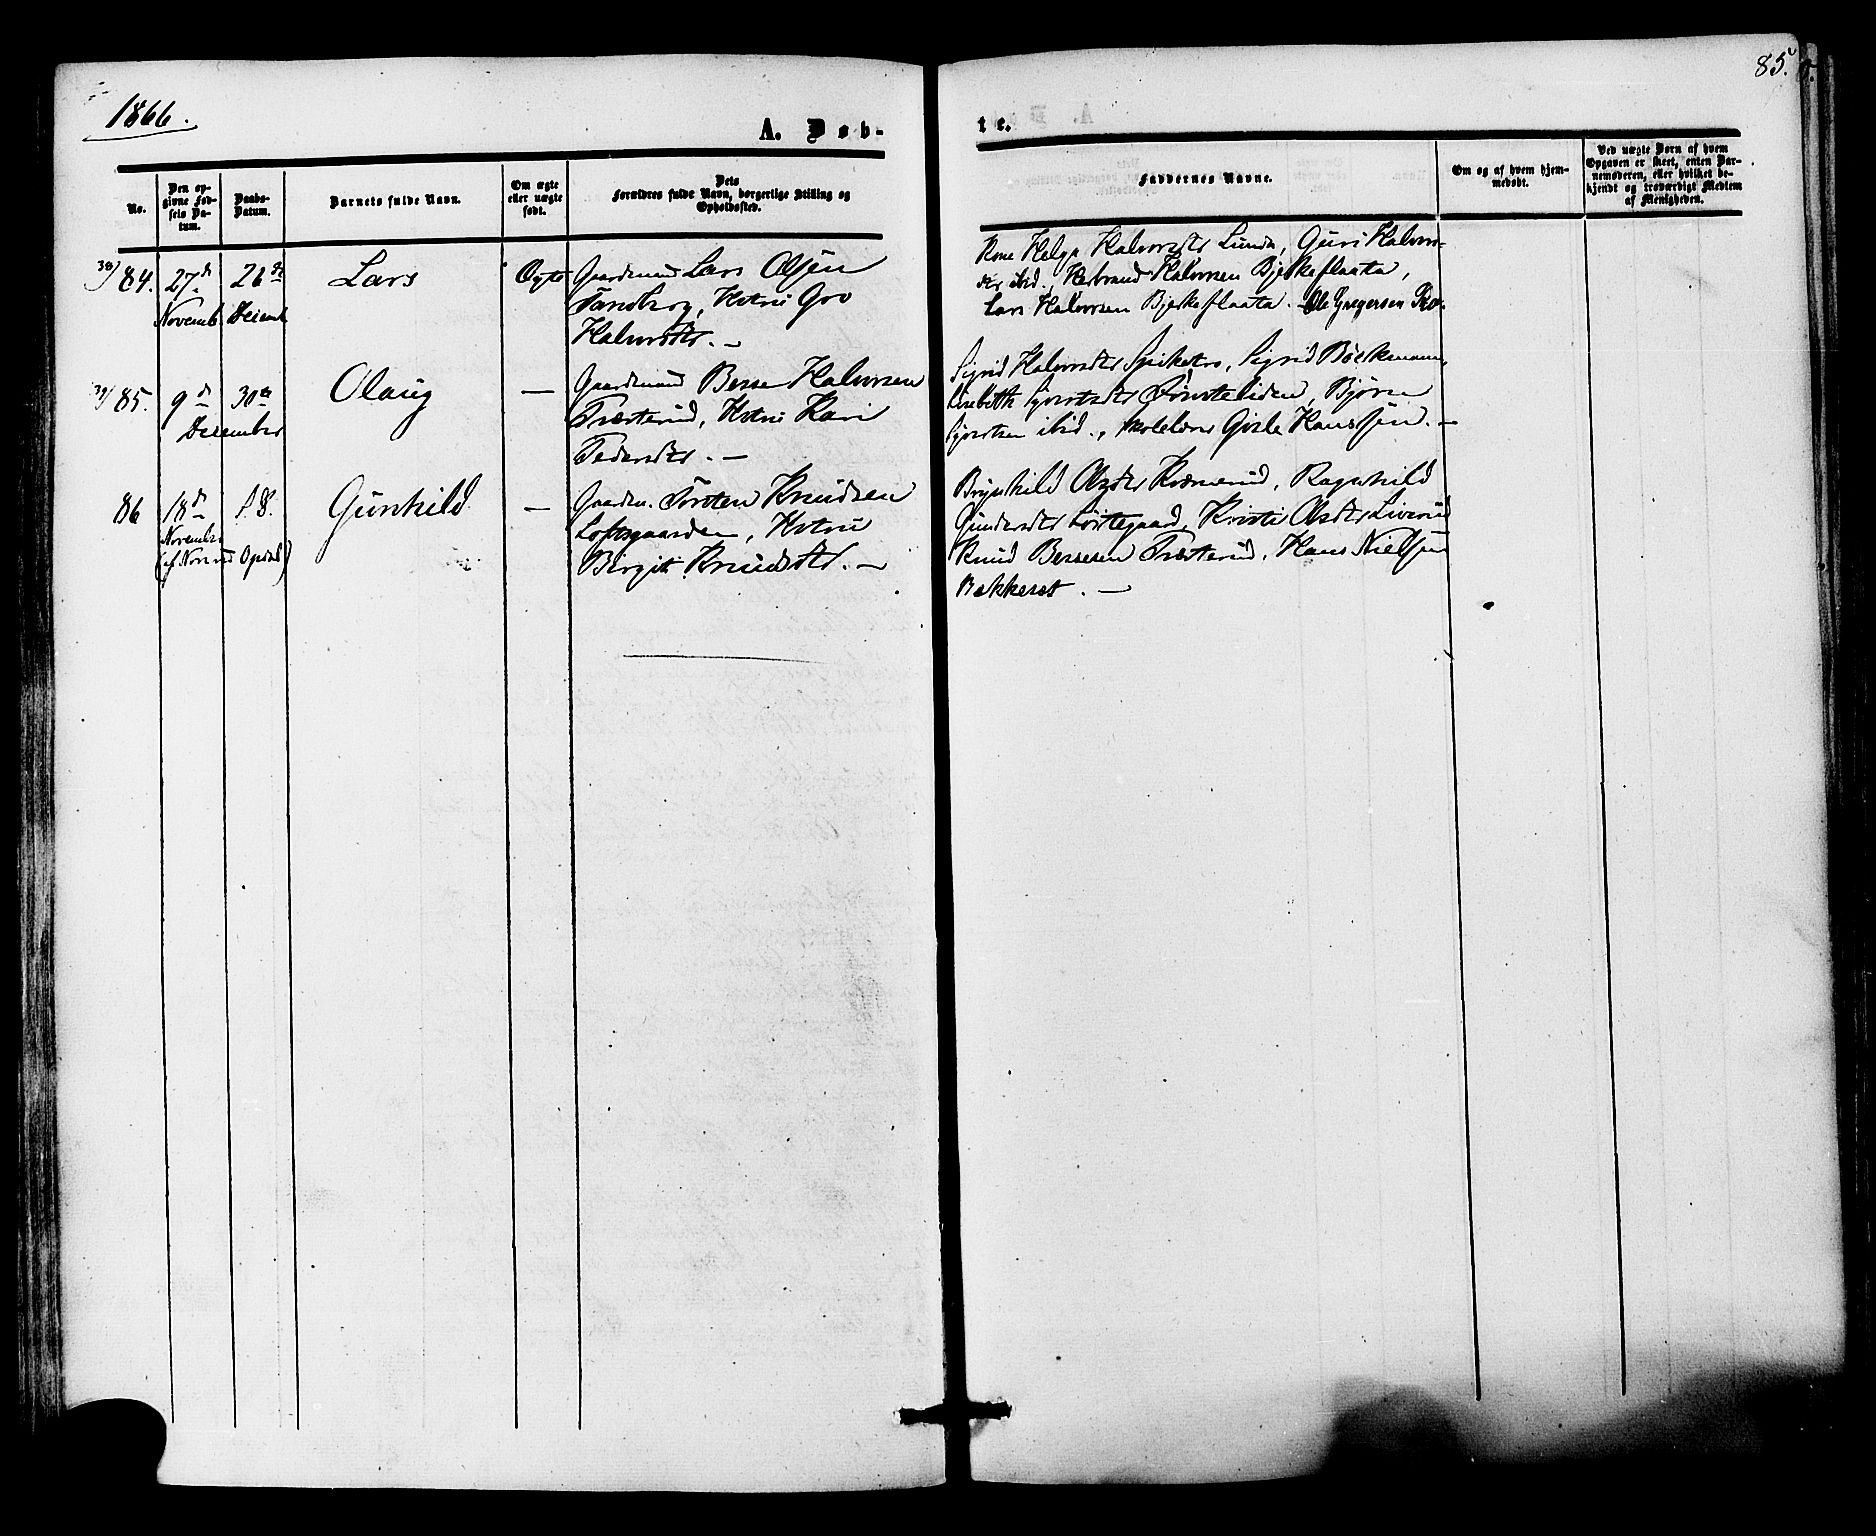 1866.
85.
A. Døb-
te.
No.
Den op-
givne Fød-
sels Da-
tum.
Daabs-
Datum.
Barnets fulde Navn.
Om ægte
eller uægte
født.
Dets
Forældres fulde Navn, borgerlige Stilling og
Opholdssted.
Faddernes Navne.
Om og af hvem hjem-
medøbt.
Ved uægte Børn af hvem
Opgaven er skeet, enten Bar-
nemoderen, eller hvilket be-
kjendt og troværdigt Medlem
af Menigheden.
38/ 84.
27de
Novemb.
26de
Decemb.
Lars
Ægte
Gaardmand Lars Olsen
Sandberg, Hstru Gro
Halvorsdtr. —
Kone Helga Halvorsdtr Lunda, Guri Halvors-
dtr ibid., Herbrand Halvorsen Bjerkeflaata,
Lars Halvorsen Bjerkeflaata. Ole Gregersen
39/ 85.
9de
30te
December
Olaug
—
Gaardmand Besse Halvorsen
Træterud, Hstru Kari
Pedersdtr. —
Sigrid Halvorsdtr, Sigrid Bøckmann,
Lisbeth Sjovatsdtr, Bjørn
ibid., Skolelærer Gisle Hanssen. —
86
18de
November
S. D.
(cf. Nore und Opdal)
Gunhild
—
Gaardm. Torsten Knudsen
Loftsgaarden, Hstru
Birgit Knudsdtr. —
Brynhild Olsdtr, Ragnhild
Gundersdtr, Kristi Olsdtr Liverud
Knud Bessesen Træterud, Hans Nielsen
Bakkeset. —